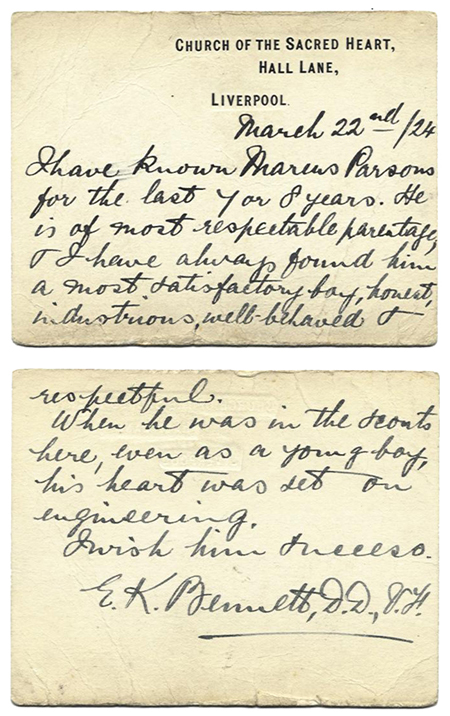 CHURCH OF THE SACRED HEART,
HALL LANE,
LIVERPOOL.
March 22nd/24
I have known Marcus Parsons
for the last 7 or 8 years. He
is of most respectable parentage,
& I have always found him
a most satisfactory boy, honest,
industrious, well-behaved &
respectful.
When he was in the scouts
here, even as a young boy,
his heart was set on
engineering.
I wish him success.
E. K. Bennett, D.D., V.F.